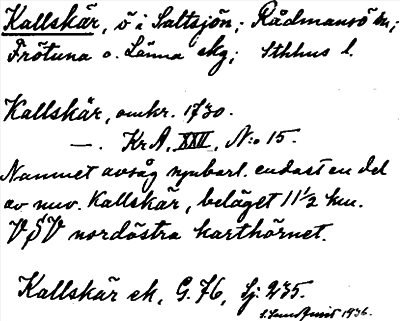 Kallskär, ö i Saltsjön; Rådmansö sn;
Frötuna o. Länna skg; Sthlms l.
Kallskär, omkr. 1730.
—. KrA, XXII, N:o 15.
Namnet avsåg uppbarl. endast en del
av nuv. Kallskär, beläget 11 1/2 km.
VSV nordöstra karthörnet.
Kallskär ek, G. 76, Lj. 235.
S. Lundquist 1936.